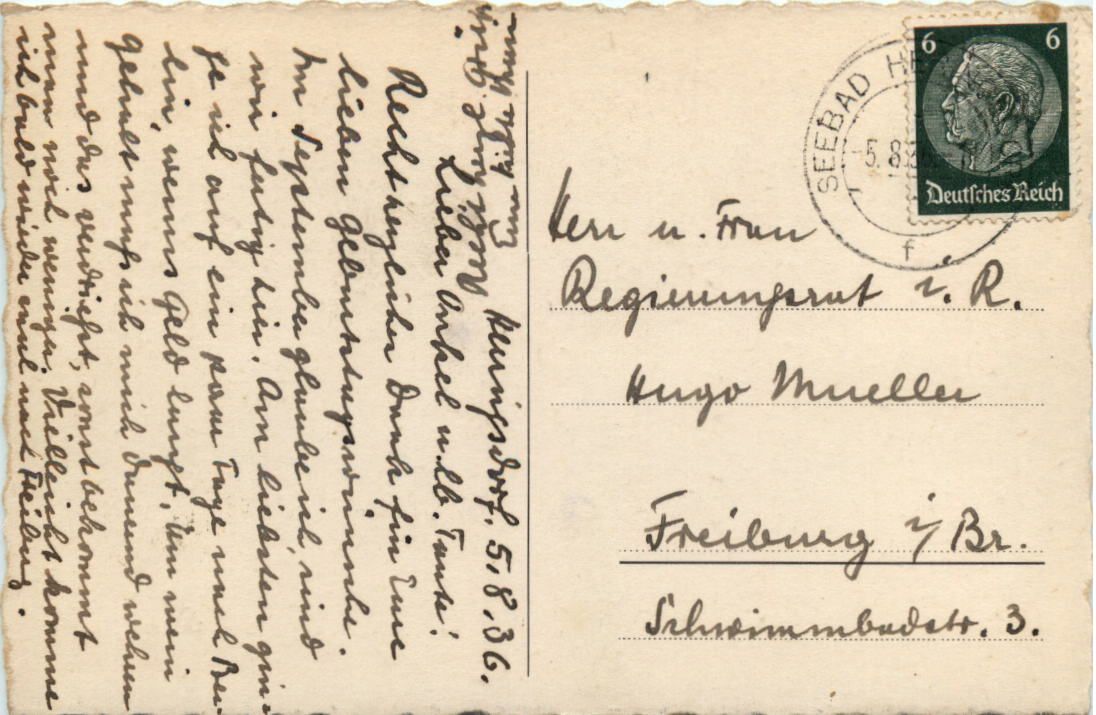 Heringsdorf. 5.8.36.
Lieber Onkel u. lb. Tante!
Recht herzlichen Dank für Eure
lieben Geburtstagswünsche.
Im September glaube ich sind
wir fertig hier. Am liebsten gin-
ge ich auf ein paar Tage nach Ber-
lin, wenns Geld langt, um mein
muss ich mich dauernd wehren
und das verdriesst, sonst bekommt
man noch weniger. Vielleicht komme
ich bald wieder mal nach Freiburg.
SEEBAD
5.8.36
f
6 6
Deutsches Reich
Herr u. Frau
Regierungsrat i. R.
Hugo Mueller
Freiburg i/Br.
Schwimmbadstr. 3.